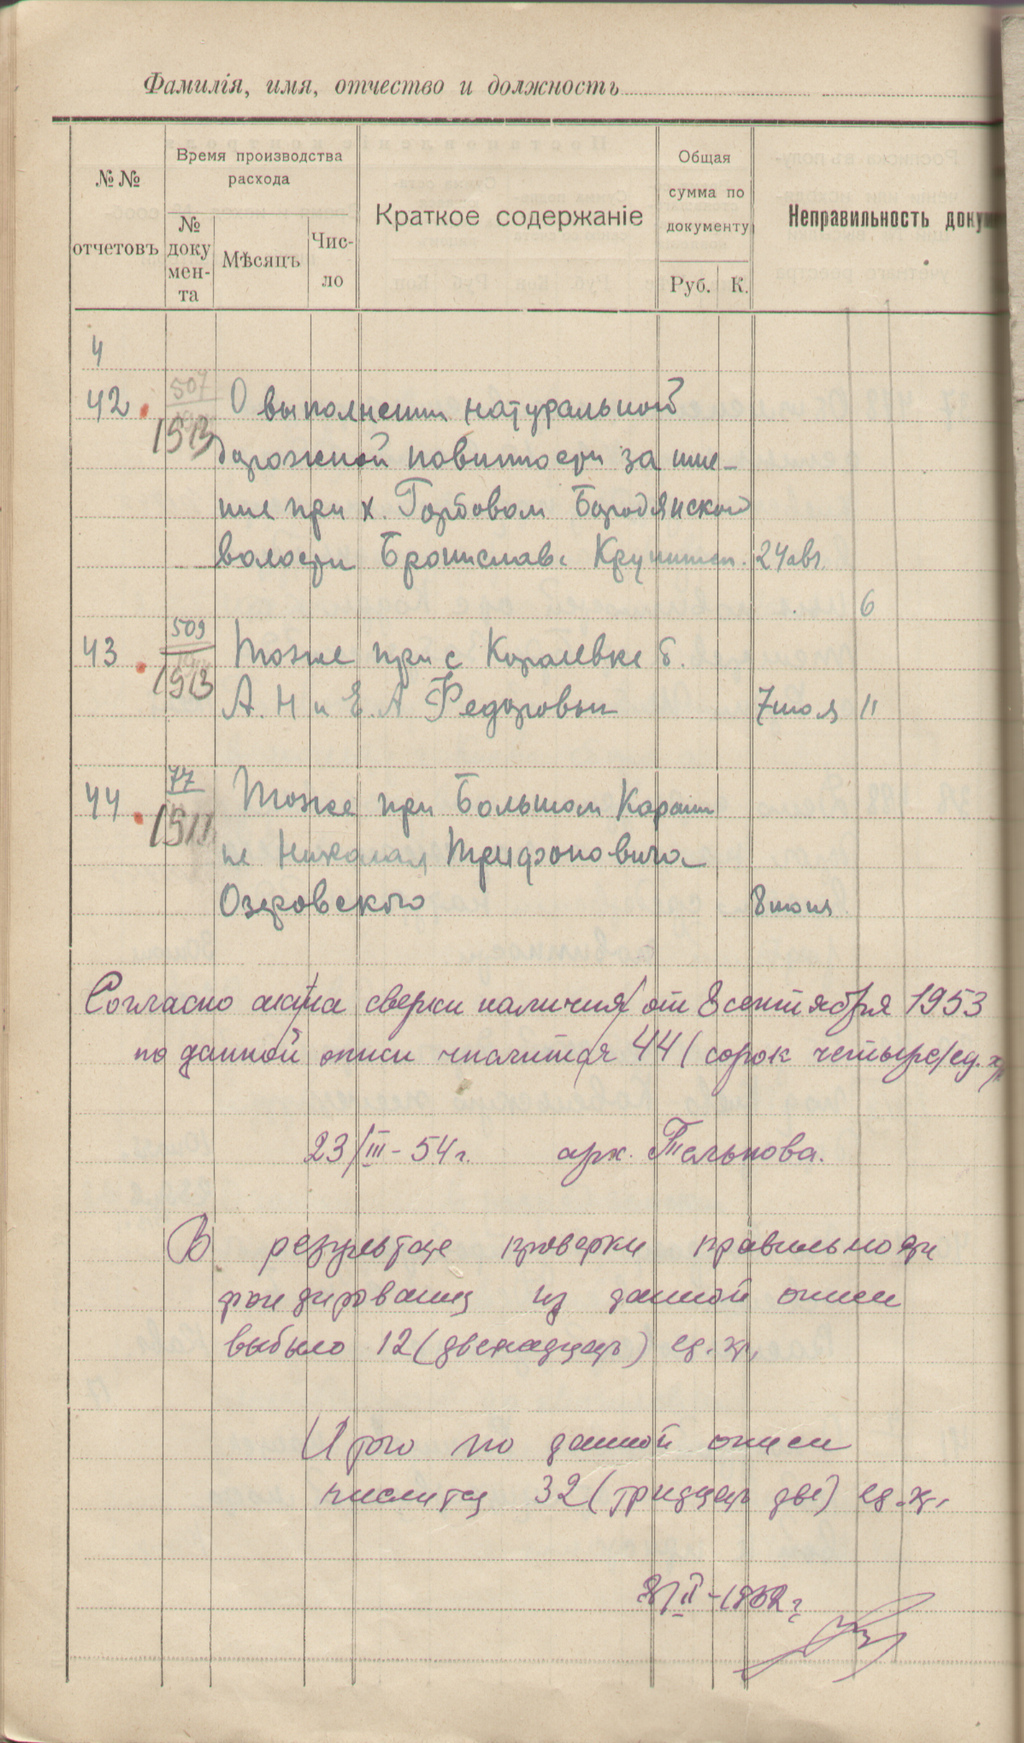 Фамилія, имя, отчество и должность
№№ отчетовъ
Время производства расхода
№ докумен-та
Мѣсяцъ
Чис-ло
Краткое содержаніе
Общая сумма по документу
Руб. К.
Неправильность доку
4
42 507 1913 О выполнении натуральной
дорожной повинности за име-
ние при х. Горбовом Бородянской
волости Бронислав. 24 авг.
6
43 509 1913 Тоже при с Королевке б.
А. Н и Е. А Федоровы 7 июл 11
44 77 1911 Тоже при Большом Караши
не Николая Трифоновича
Озеровского 8 июня
Согласно акта сверки наличия от 8 сентября 1953
по данной описи числится 44 (сорок четыре) ед. х
23/III - 54 г. арх. Телькова.
В результате проверки правильности
фондирования из данной описи
выбыло 12 (двенадцать) ед. хр.
Итого по данной описи
числится 32 (тридцать две) ед. хр.